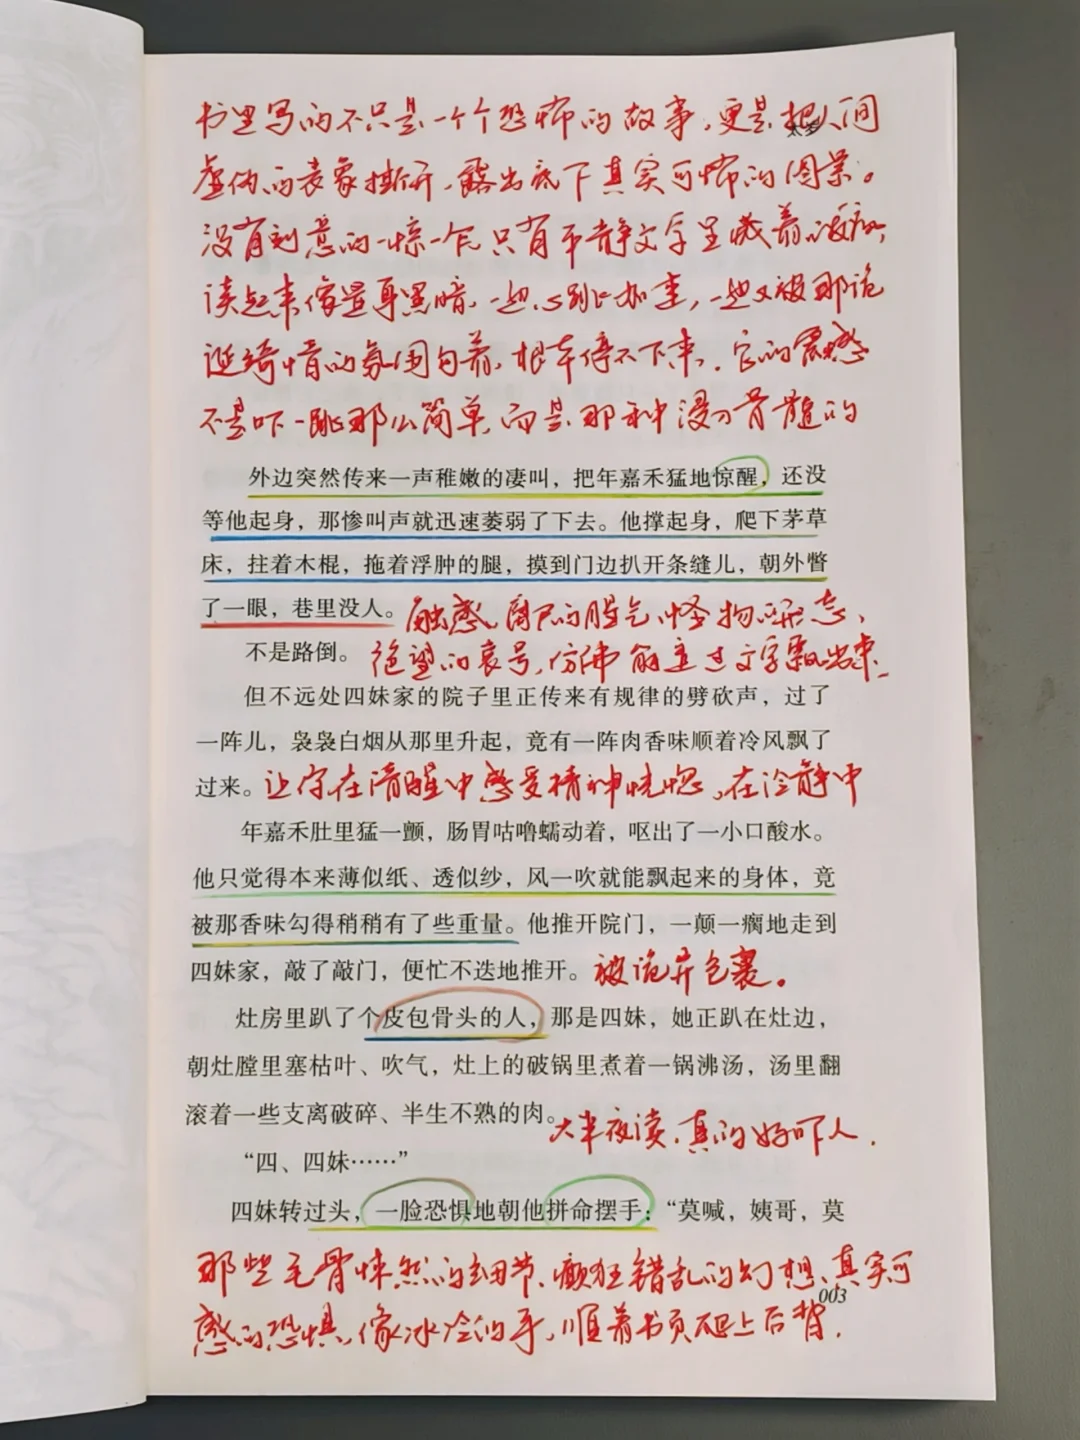 书里写的不只是一个个恐怖的故事,更是把人间
太岁
虚伪的表象撕开,露出底下真实可怖的图景。
没有刻意的一惊一乍,只有平静文字里藏着的疯,
读起来像置身黑暗,一边心跳加速,一边又被那诡
诞绮情的氛围勾着,根本停不下来,它的震撼
不是吓一跳那么简单,而是那种浸到骨髓的
外边突然传来一声稚嫩的凄叫,把年嘉禾猛地惊醒,还没
等他起身,那惨叫声就迅速萎弱了下去。他撑起身,爬下茅草
床,拄着木棍,拖着浮肿的腿,摸到门边扒开条缝儿,朝外瞥
了一眼,巷里没人。触感,腐尸的腥气,怪物的形态,
不是路倒。绝望的哀号,仿佛能透过文字飘出来,
但不远处四妹家的院子里正传来有规律的劈砍声,过了
一阵儿,袅袅白烟从那里升起,竟有一阵肉香味顺着冷风飘了
过来。让你在清醒中感受精神恍惚,在冷静中
年嘉禾肚里猛一颤,肠胃咕噜蠕动着,呕出了一小口酸水。
他只觉得本来薄似纸、透似纱,风一吹就能飘起来的身体,竟
被那香味勾得稍稍有了些重量。他推开院门,一颠一瘸地走到
四妹家,敲了敲门,便忙不迭地推开。被诡异包裹。
灶房里趴了个皮包骨头的人,那是四妹,她正趴在灶边,
朝灶膛里塞枯叶、吹气,灶上的破锅里煮着一锅沸汤,汤里翻
滚着一些支离破碎、半生不熟的肉。大半夜读,真的好吓人.
“四、四妹……”
四妹转过头,一脸恐惧地朝他拼命摆手:“莫喊,姨哥,莫
那些毛骨悚然的细节、癫狂错乱的幻想、真实可
003
感的恐惧,像冰冷的手,顺着书页爬上后背.